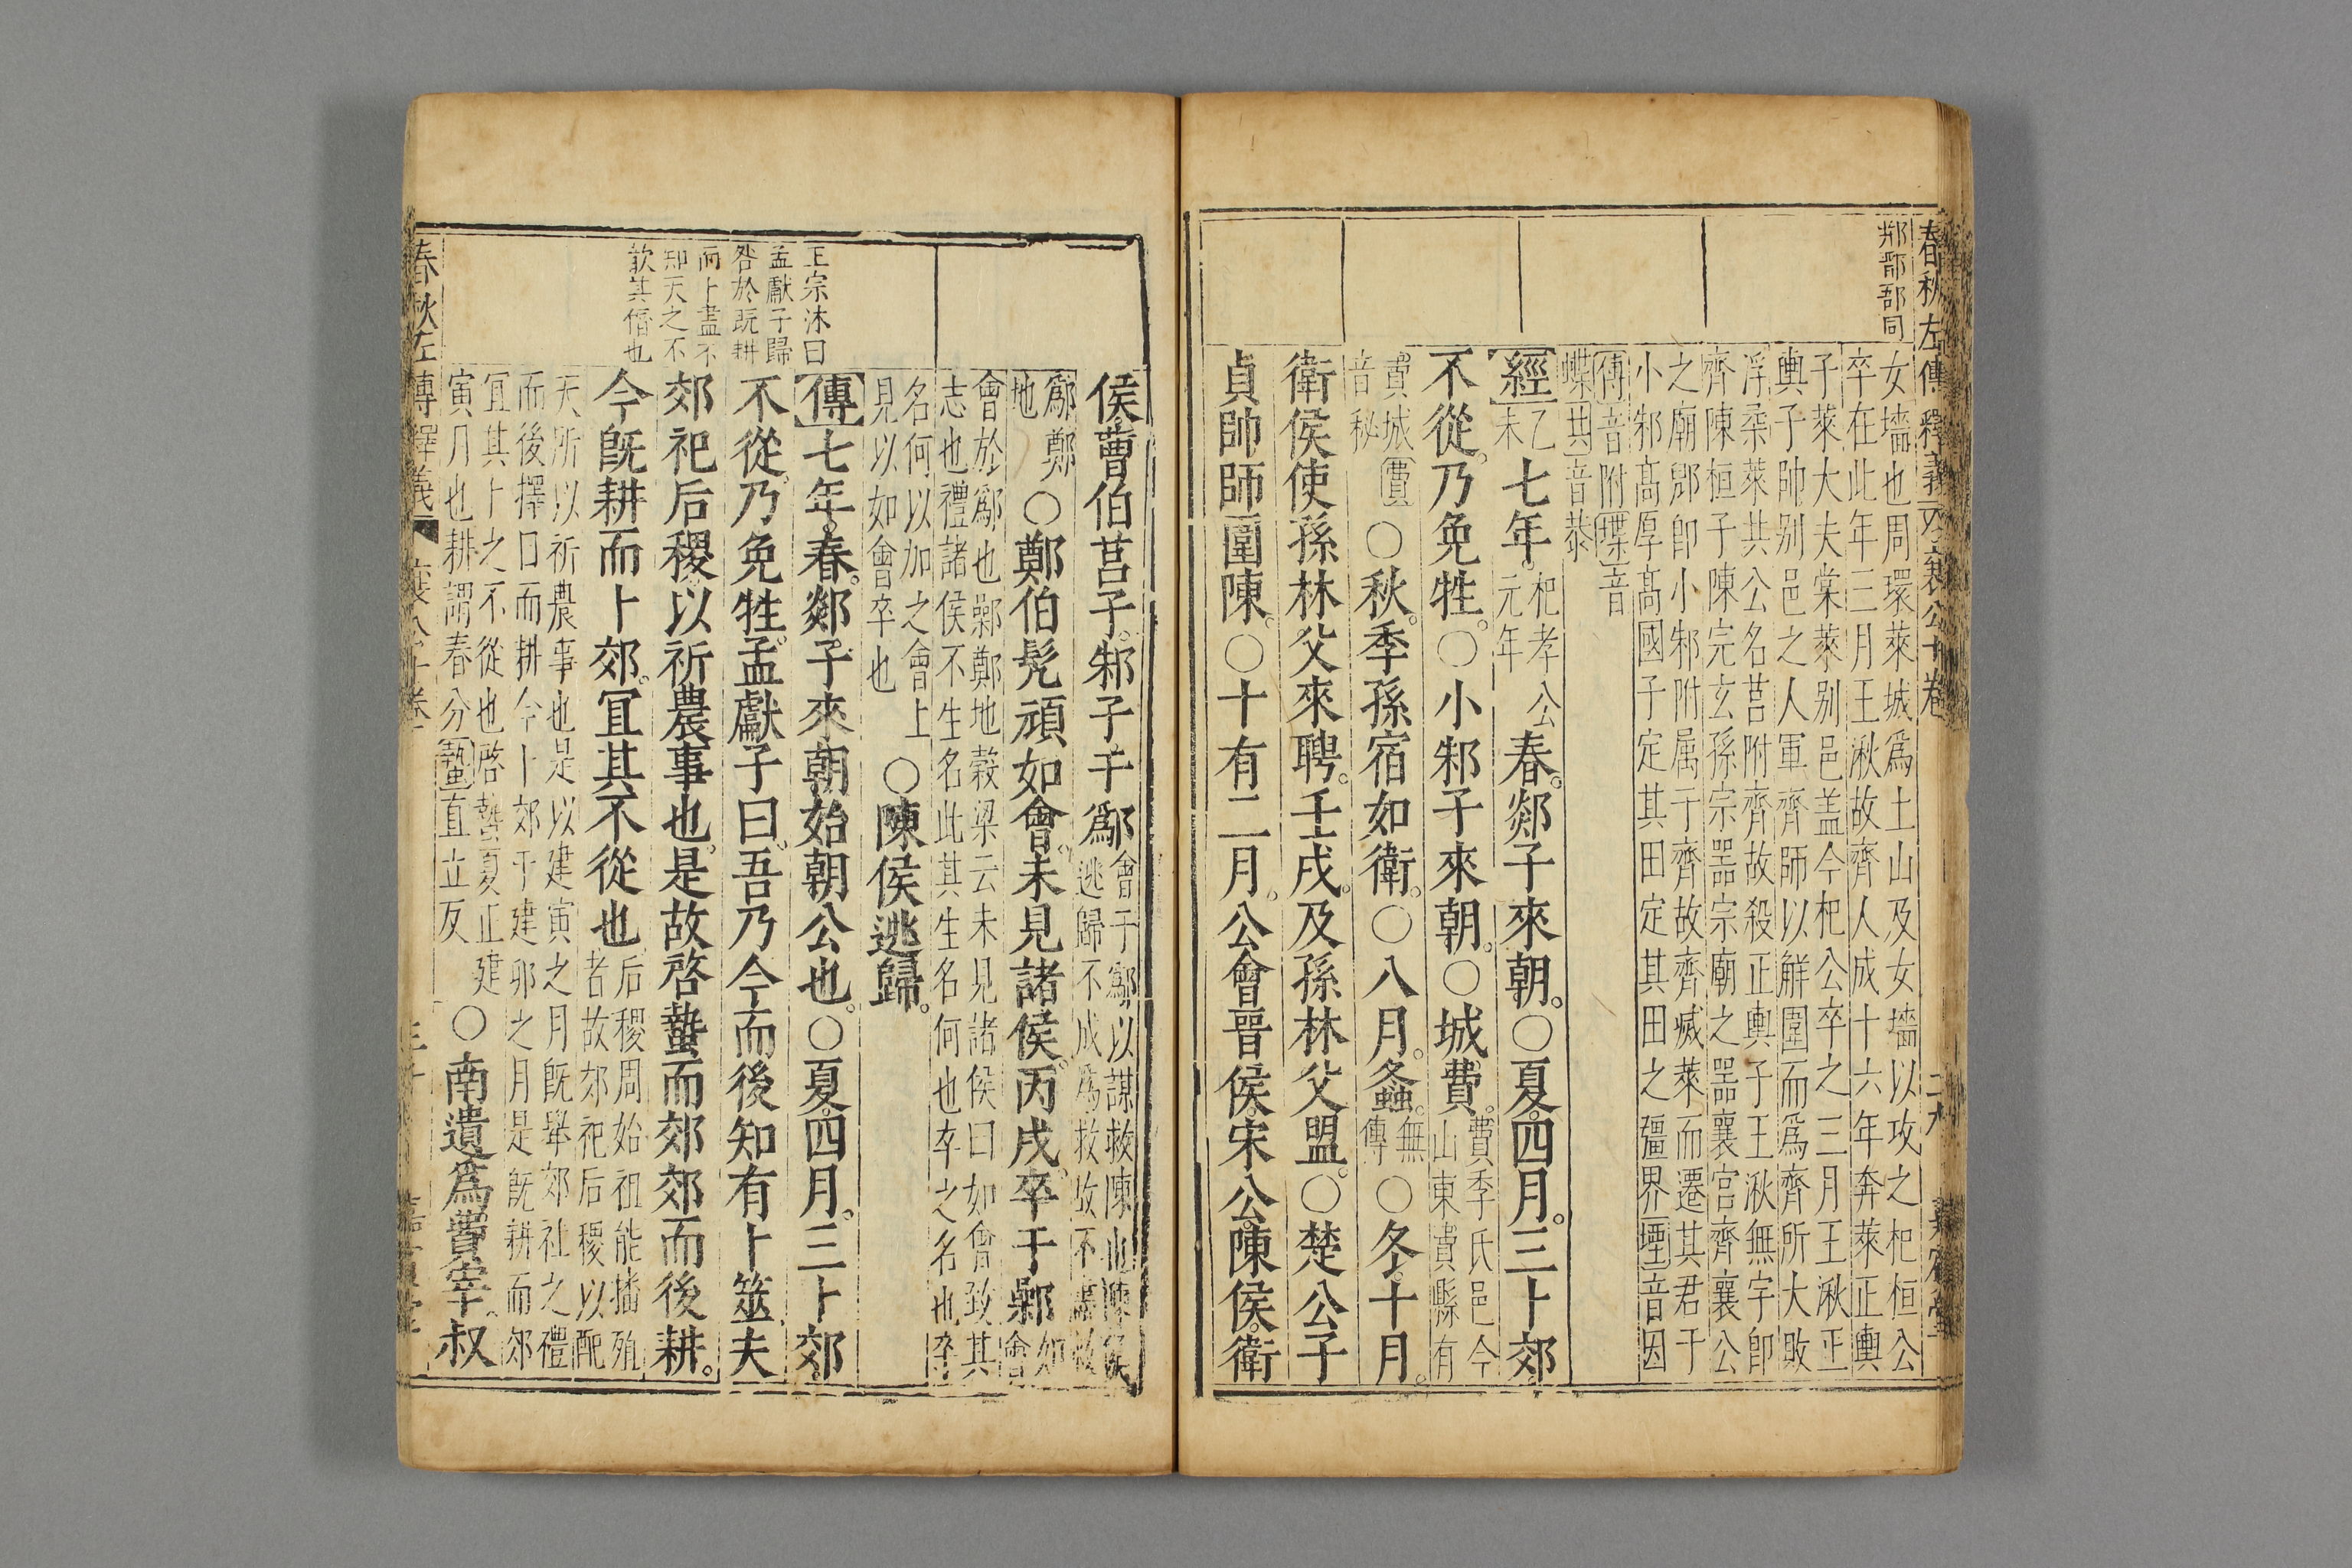 春秋左傳釋義 襄公十卷
邾鄅郚同
女墻也周環萊城爲土山及女墻以攻之杞桓公
卒在此年三月王湫故齊人成十六年奔萊正輿
子萊大夫棠萊別邑盖今杞公卒之三月王湫正
輿子帥別邑之人軍齊師以觧圍而爲齊所大敗
浮柔萊共公名莒附齊故殺正輿子王湫無宇即
齊陳桓子陳完玄孫宗噐宗廟之噐襄宫齊襄公
之廟郳即小邾附属于齊故齊滅萊而遷其君于
小邾高厚高國子定其田定其田之疆界堙音因
傅音附堞音
蝶共音恭
經乙未七年杞孝公元年春郯子來朝○夏四月三卜郊
不從乃免牲○小邾子來朝○城費費季氏邑今山東費縣有
費城費音秘○秋季孫宿如衛○八月螽無傳○冬十月
衛侯使孫林父來聘壬戌及孫林父盟○楚公子
貞帥師圍陳○十有二月公會晋侯宋公陳侯衛
侯曹伯莒子邾子于鄬會于鄬以謀救陳也陳侯逃歸不成爲救故不書救
鄬鄭地○鄭伯髠頑如會未見諸侯丙戌卒于鄵如會
會於鄬也鄵鄭地穀梁云未見諸侯曰如會致其
志也禮諸侯不生名此其生名何也卒之名也卒
名何以加之會上
見以如會卒也○陳侯逃歸
傳七年春郯子來朝始朝公也○夏四月三卜郊
不從乃免牲孟獻子曰吾乃今而後知有卜筮夫
郊祀后稷以祈農事也是故啓蟄而郊郊而後耕
今旣耕而卜郊冝其不從也后稷周始祖能播殖者故郊祀后稷以配
天所以祈農事也是以建寅之月旣舉郊社之禮
而後擇日而耕今卜郊于建卯之月是旣耕而郊
冝其卜之不從也啓蟄夏正建
寅月也耕謂春分蟄直立反○南遺爲費宰叔
王宗沐曰
孟獻子歸
咎於既耕
而卜盖不
知天之不
歆其僭也
春秋左傳釋義